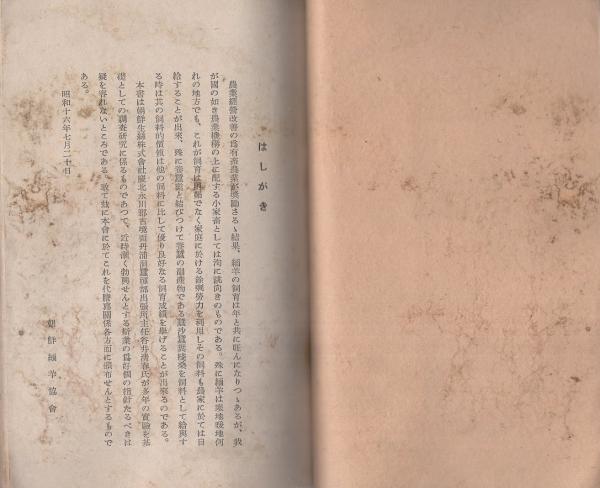 はしがき
農業經營改善の爲有畜農業が奬勵さるゝ結果、緬羊の飼育は年と共に旺んになりつゝあるが、我
が國の如き農業機構の上に配する小家畜としては洵に誂向きのものである。殊に緬羊は寒地暖地何
れの地方でも、これが飼育は困難でなく家庭に於ける餘剩勞力を利用しその飼料も農家に於ては自
給することが出來、殊に養蠶業と結びつけて養蠶の副産物である蠶沙蠶糞殘桑を飼料として給與す
る時は其の飼料的價値は他の飼料に比して優り良好なる飼育成績を擧げることが出來るのである。
本書は朝鮮生絲株式會社慶北永川郡古鏡面丹浦洞蠶種部出張所主任谷井濟春氏が多年の實驗を基
礎としての調査研究に係るものであつて、近時漸く勃興せんとする斯業の爲好個の指針たるべきは
疑を容れないところである。敢て玆に本會に於てこれを代謄寫關係各方面に頒布せんとするもので
ある。
昭和十六年七月二十日
朝鮮緬羊協會